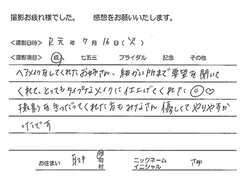 撮影お疲れ様でした。 感想をお願いいたします。
<撮影日時> R元年 7月 16日(火)
<撮影項目> 成人 七五三 ブライダル 記念 その他
ヘアメイクをしてくれたお姉さん、細かい所まで要望を聞いて
くれて、とってもタイプなメイクに仕上げてくれた
撮影をして下さった方もみなさん優しくてやりやすか
ったです
お住まい 市 町 村 ニックネーム イニシャル